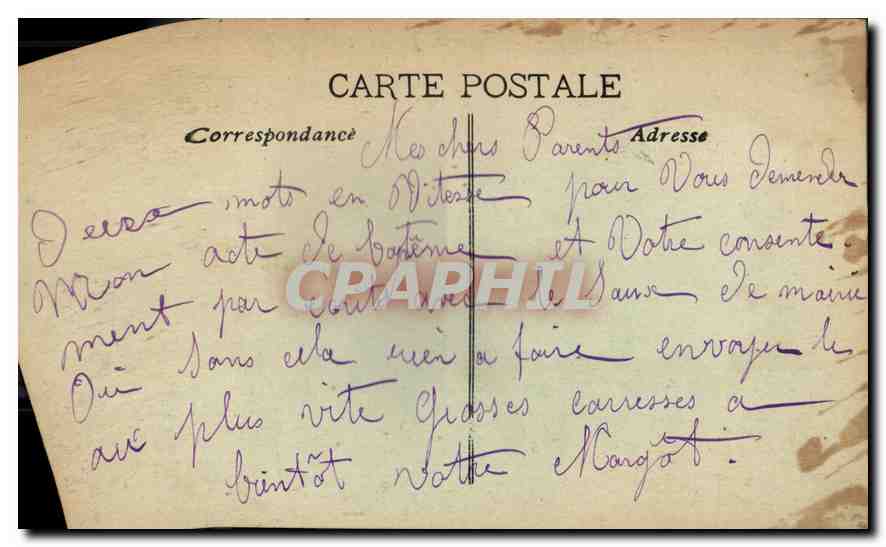 CARTE POSTALE
Correspondance Adresse
Mes chers Parents
Deux mots en Vitesse pour Vous demender
Mon acte de batême et Votre consente-
ment par écrits avec le Saux de mairie
Oui sans cela rien a faire envoyer le
au plus vite Grosses carresses a
bientôt votre Margot.
CPAPHIL